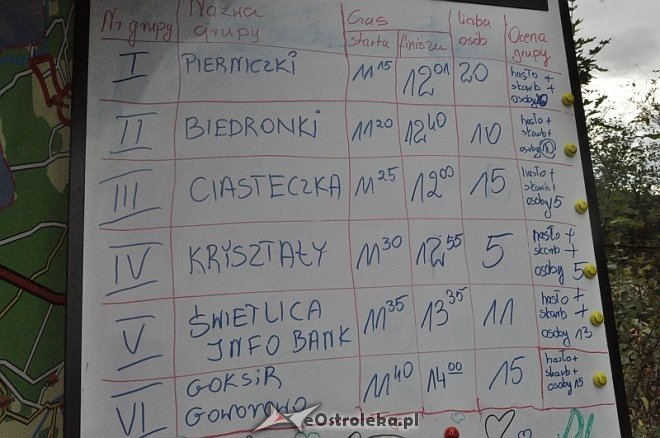 Nr grupy Nazwa grupy Czas liczba osób Ocena grupy
startu finiszu
I PIERNICZKI 11 15 12 01 20 hasło + skarb + osoby 20
II BIEDRONKI 11 20 12 40 10 hasło + skarb + osoby 10
III CIASTECZKA 11 25 12 00 15 hasło + skarb + osoby 15
IV KRYSZTAŁY 11 30 12 55 5 hasło + skarb + osoby 5
V ŚWIETLICA INFO BANK 11 35 13 35 11 hasło + skarb + osoby 13
VI GOKSiR Goworowo 11 40 14 00 15 hasło + skarb + osoby 15
eOstroleka.pl